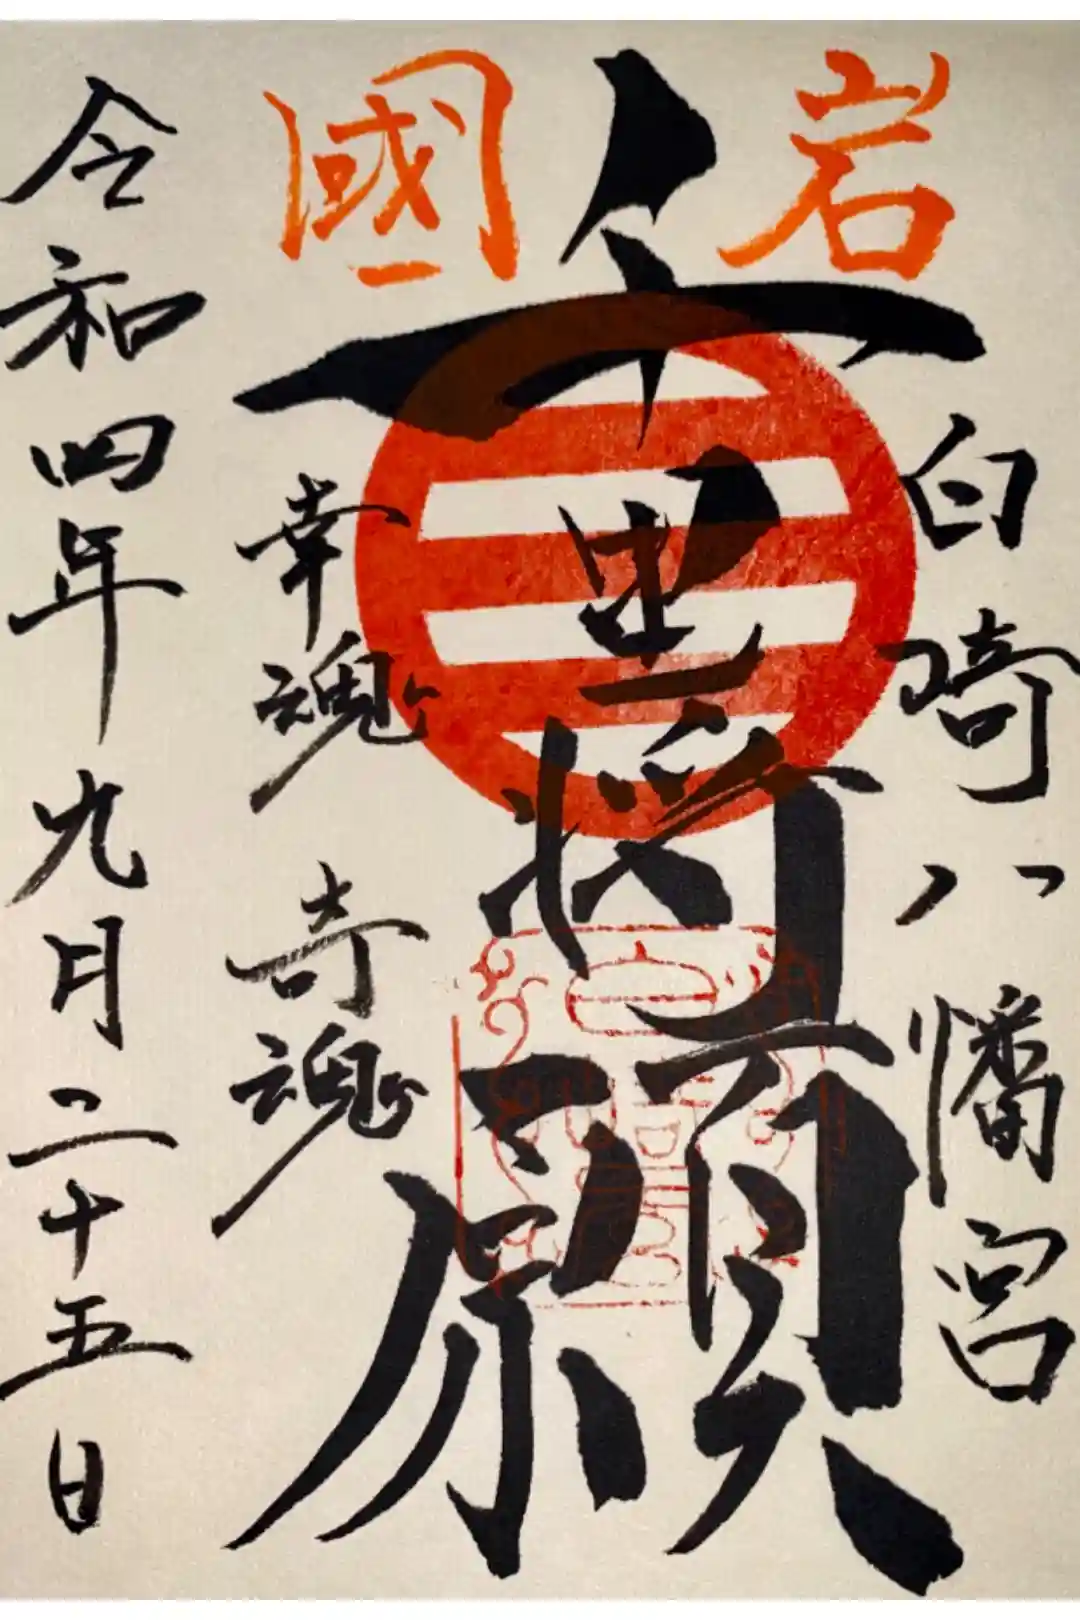 岩國
白崎八幡宮
願
幸魂 奇魂
令和四年九月二十五日